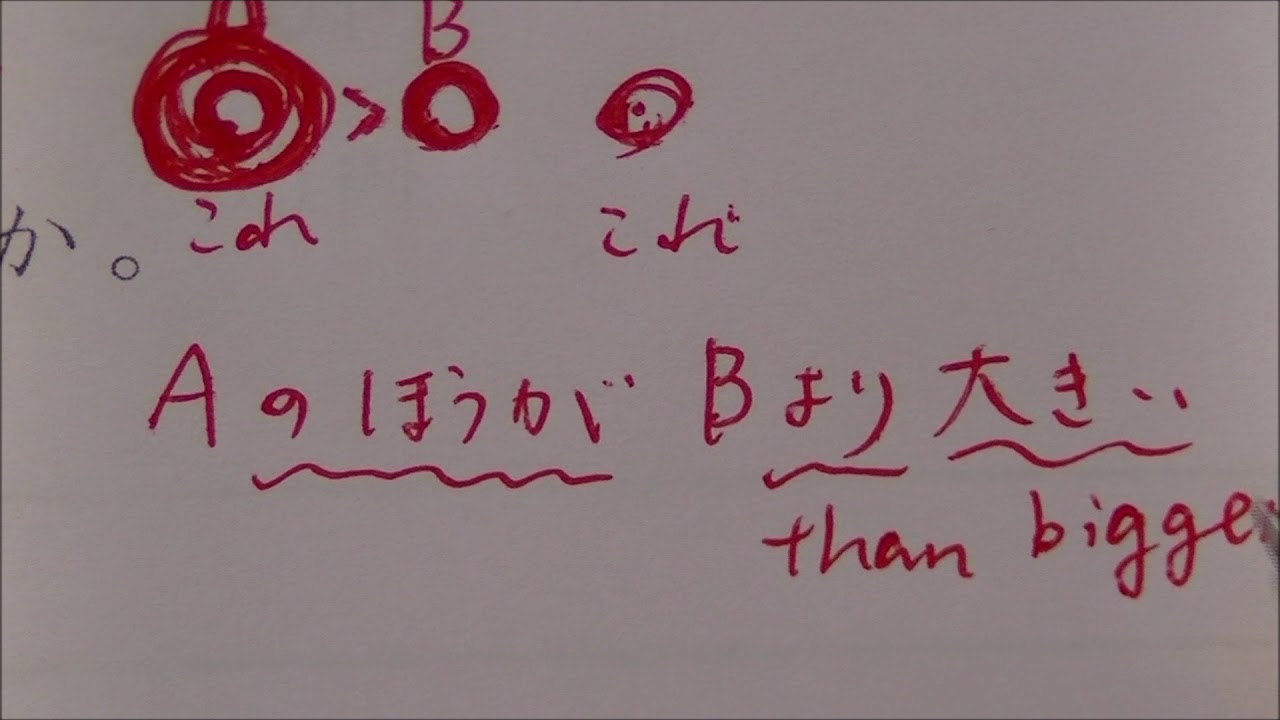 A B
>
か。 これ これ
Aのほうが Bより大きい
than bigge